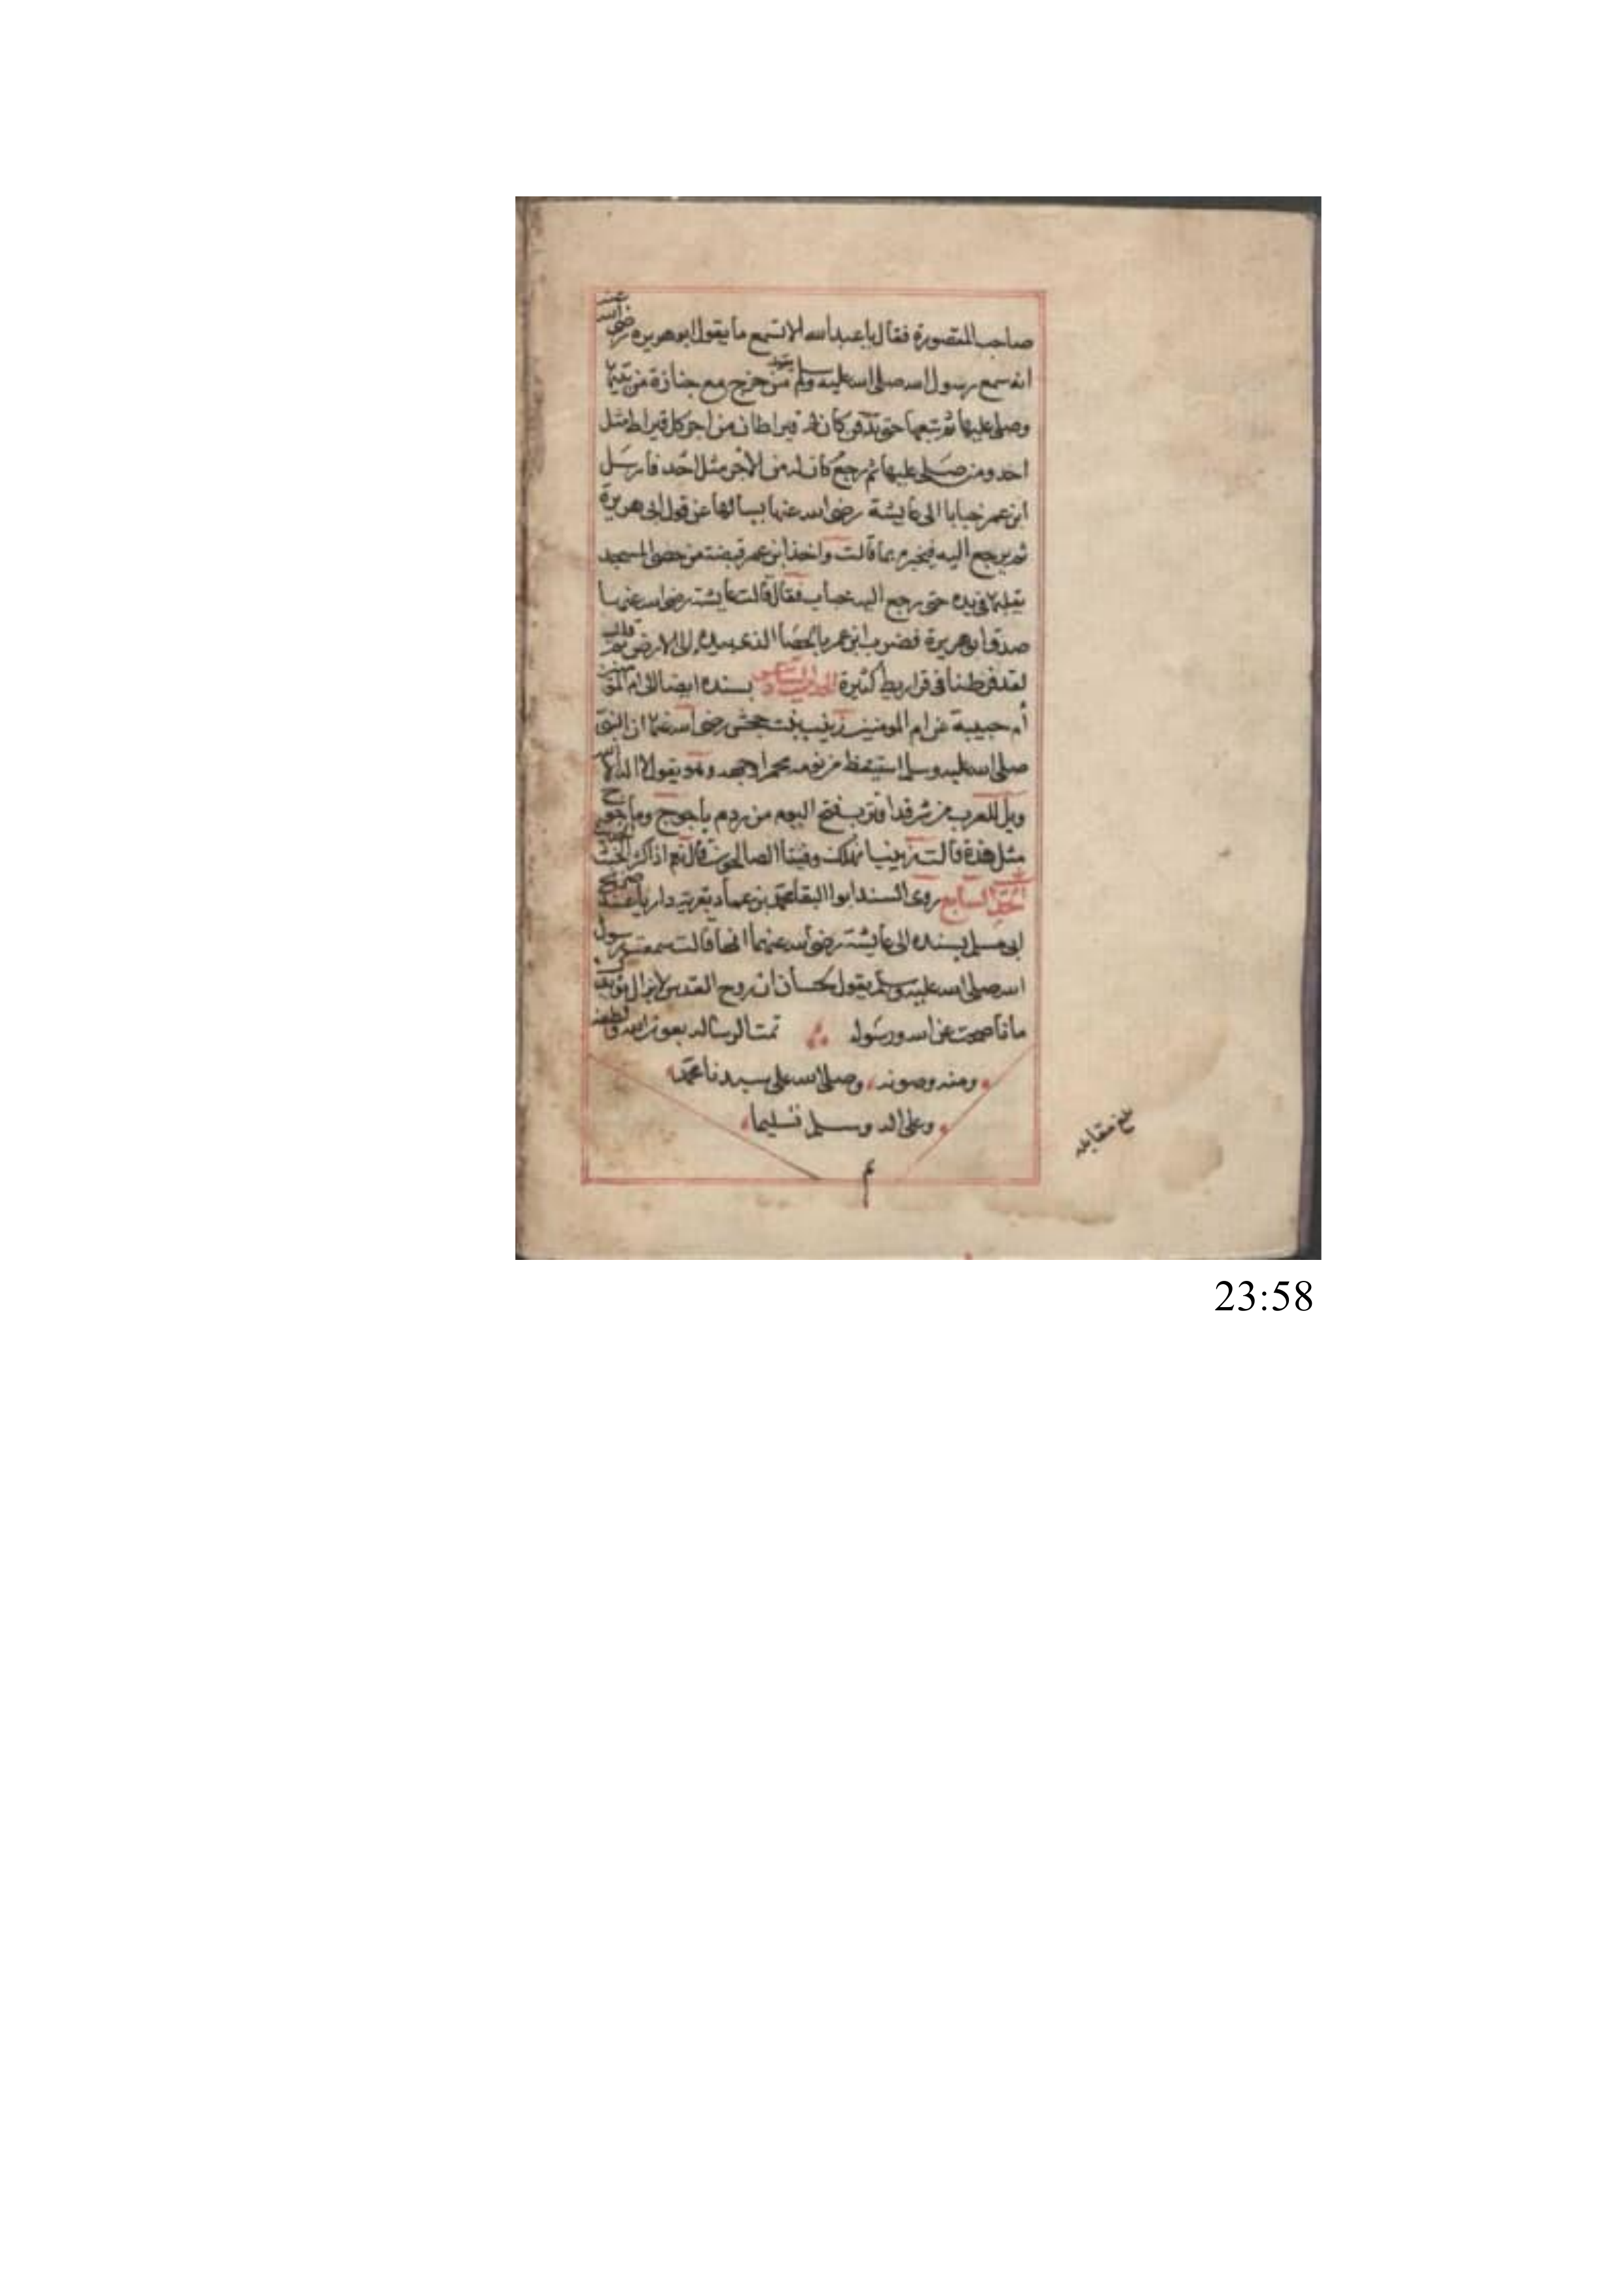 صاحب المقصورة فقال يا عبد الله لا تسمع ما يقول ابو هريرة رضي الله عنه
انه سمع رسول الله صلى الله عليه وسلم يقول من خرج مع جنازة من بيتها
وصلى عليها ثم تبعها حتى تدفن كان له قيراطان من اجر كل قيراط مثل
احد ومن صلى عليها ثم رجع كان له من الأجر مثل احد فارسل
ابن عمر خبابا الى عايشة رضي الله عنها يسالها عن قول ابي هريرة
ثم يرجع اليه فيخبره بما قالت واخذ ابن عمر قبضة من حصى المسجد
يقلبها في يده حتى رجع اليه فقال قالت عايشة رضي الله عنها
صدق ابو هريرة فضرب ابن عمر بالحصا الذي بيده الى الارض ثم قال
لقد فرطنا في قراريط كثيرة الحديث السادس بسنده ايضا الى ام المؤمنين
أم حبيبة عن ام المومنين زينب بنت جحش رضي الله عنها ان النبي
صلى الله عليه وسلم استيقظ من نومه محمرا وجهه وهو يقول لا اله الا الله
ويل للعرب من شر قد اقترب فتح اليوم من ردم يأجوج ومأجوج
مثل هذه قالت زينب انهلك وفينا الصالحون قال نعم اذا كثر الخبث
الحديث السابع روى السند ابوا البقا محمد بن عماد بقرية داريا عند ضريح
ابي مسلم بسنده الى عايشة رضي الله عنها انها قالت سمعت رسول
الله صلى الله عليه وسلم يقول لحسان ان روح القدس لا يزال يؤيدك
ما نافحت عن الله ورسوله تمت الرساله بعون الله ولطفه
ومنه وصونه وصلى الله على سيدنا محمد
وعلى اله وسلم تسليما
م
بلغ مقابله
23:58